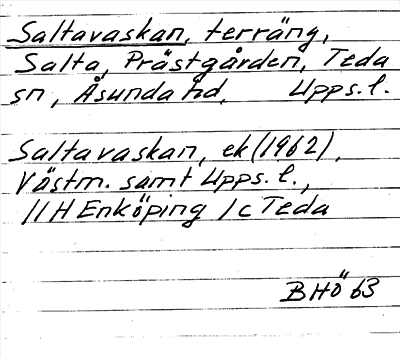 Saltavaskan, terräng,
Salta, Prästgården, Teda
sn, Åsunda hd, Upps. l.
Saltavaskan, ek (1962),
Västm. samt Upps. l.,
11H Enköping 1c Teda
BHÖ 63